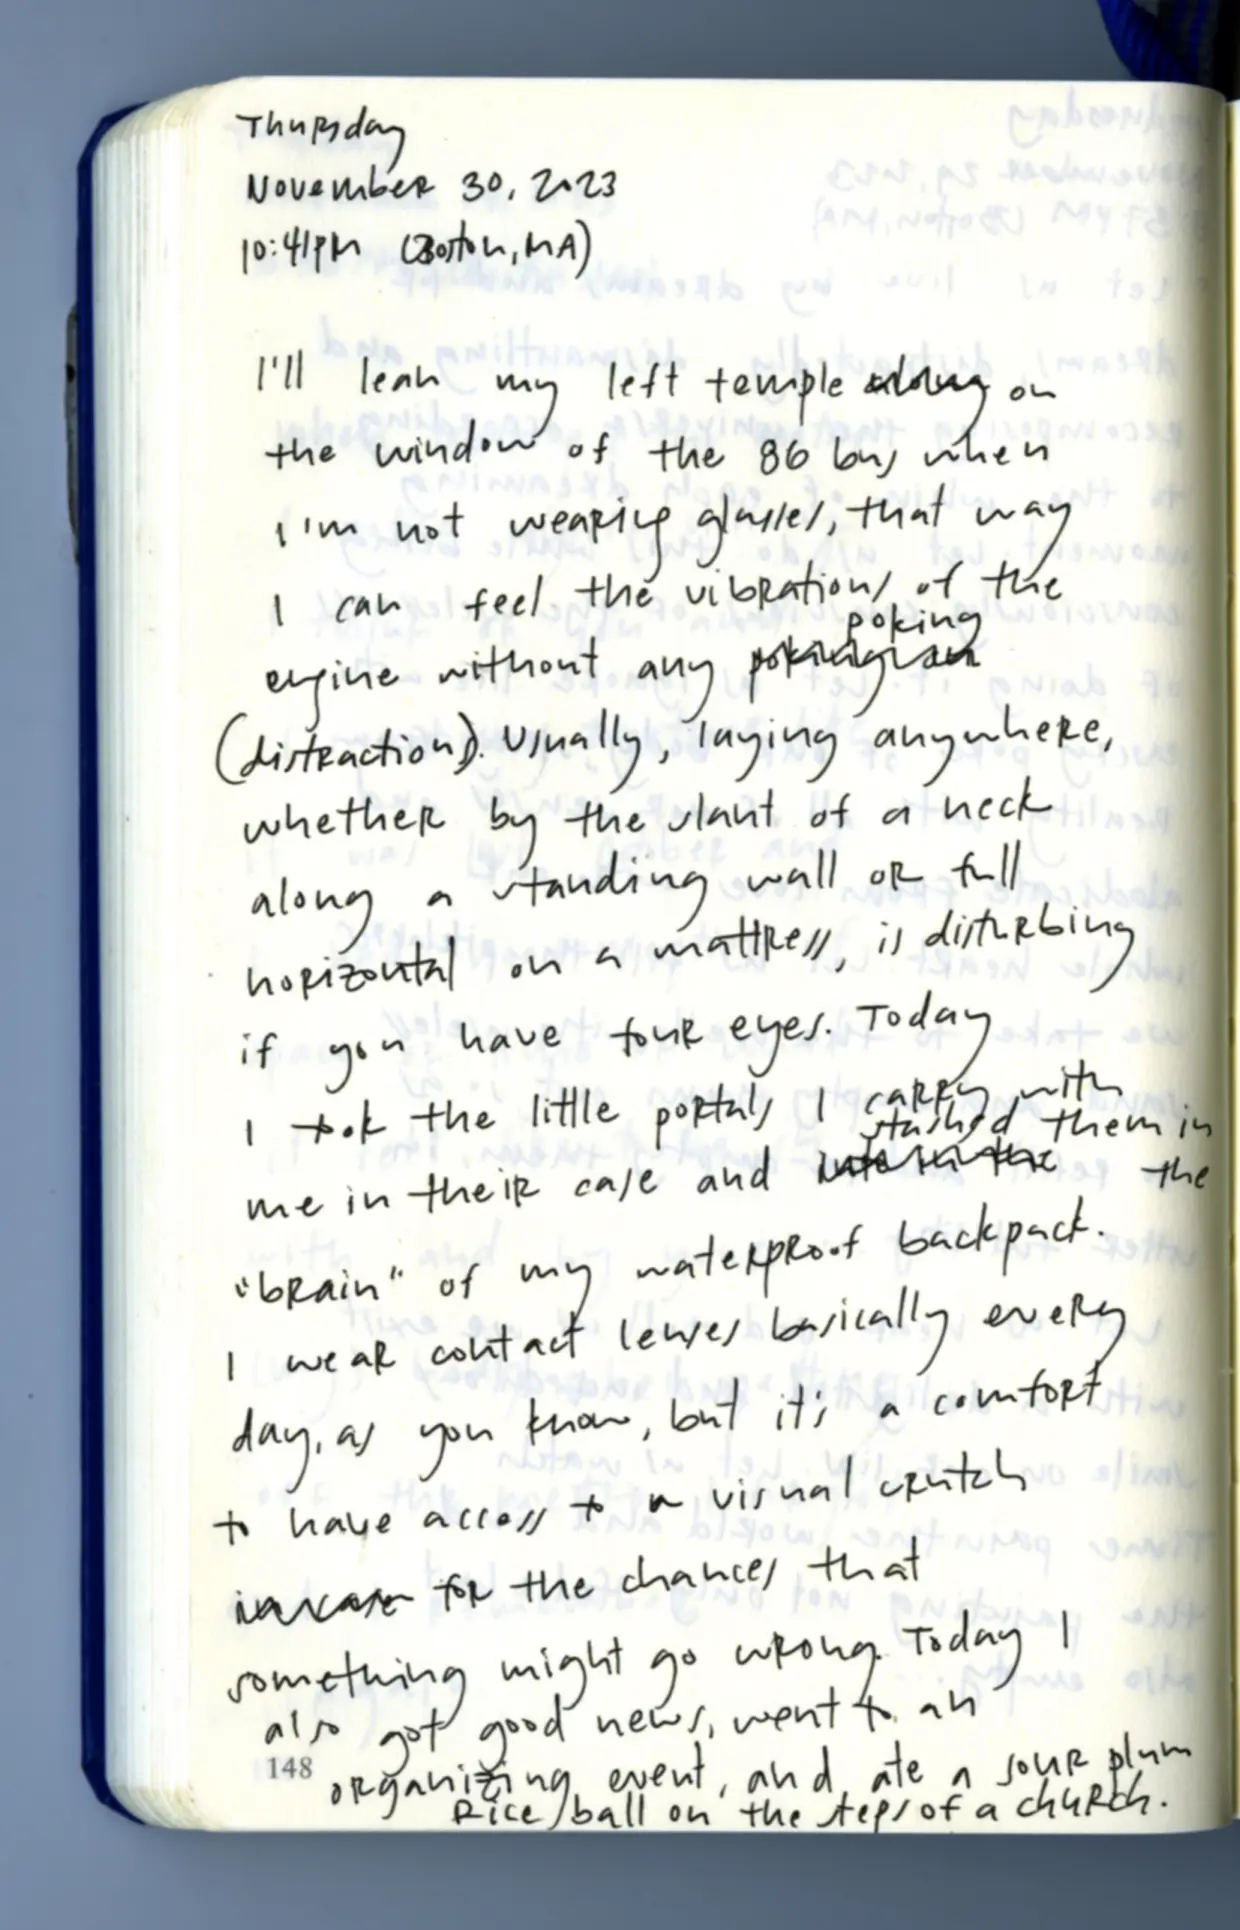 Thursday
November 30, 2023
10:41PM (Boston, MA)
I'll lean my left temple along on
the window of the 86 bus when
I'm not wearing glasses, that way
I can feel the vibrations of the
poking
engine without any
(distraction). Usually, laying anywhere,
whether by the slant of a neck
along a standing wall or full
horizontal on a mattress, is disturbing
if you have four eyes. Today
I took the little portals I carry with
stashed them in
me in their case and the
"brain" of my waterproof backpack.
I wear contact lenses basically every
day, as you know, but it's a comfort
to have access to a visual crutch
in case for the chances that
something might go wrong. Today I
also got good news, went to an
148
organizing event, and ate a sour plum
rice ball on the steps of a church.